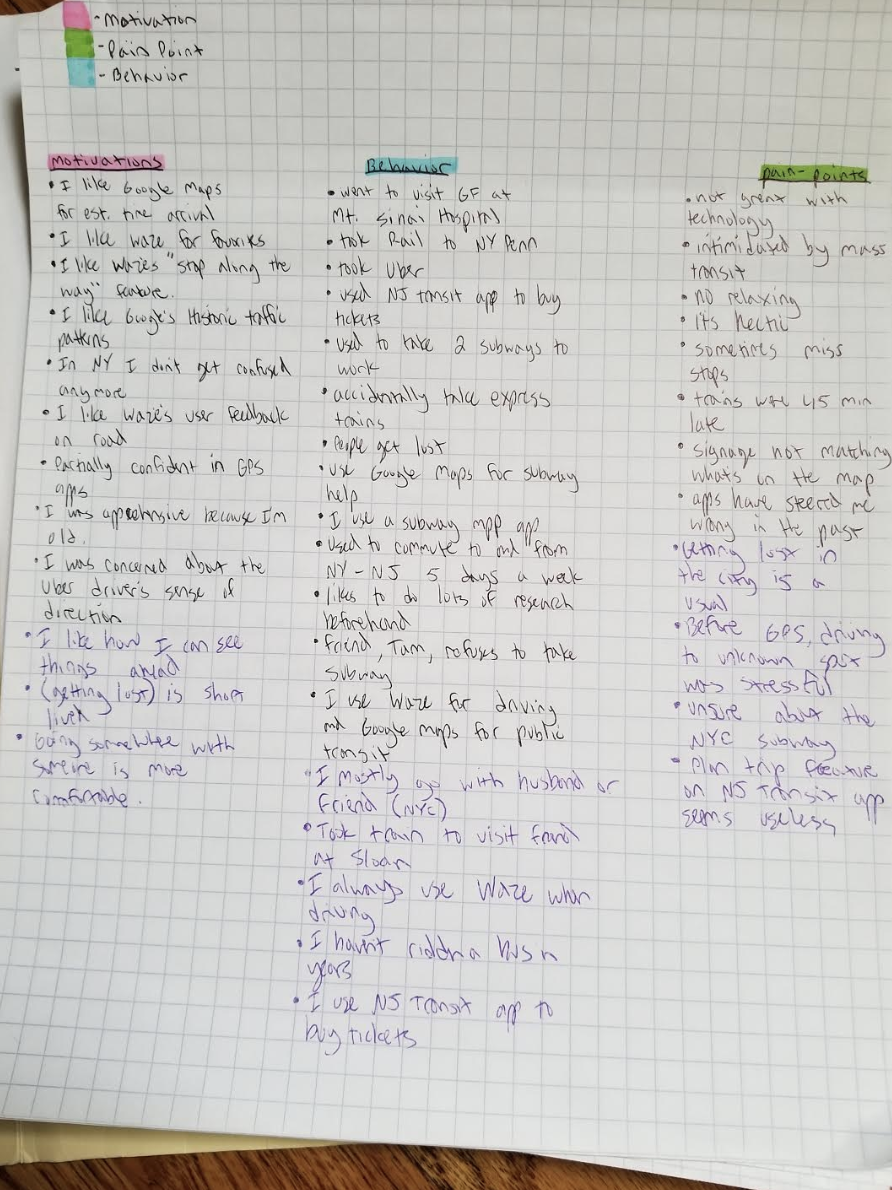 - Motivation
- Pain Point
- Behavior
Motivations
• I like Google Maps
for est. time arrival
• I like waze for favorites
• I like Wazes "stop along the
way" feature.
• I like Google's Historic traffic
patterns
• In NY I don't get confused
anymore
• I like Waze's user feedback
on road
• Partially confident in GPS
apps
• I was apprehensive because I'm
old.
• I was concerned about the
Uber driver's sense of
direction
• I like how I can see
things ahead
• (getting lost) is short
lived
• Being somewhere with
someone is more
comfortable.
Behavior
• went to visit GF at
Mt. Sinai Hospital
• took Rail to NY Penn
• took Uber
• used NJ transit app to buy
tickets
• used to take 2 subways to
work
• accidentally take express
trains
• People get lost
• use Google Maps for subway
help
• I use a subway mpp app
• Used to commute to and from
NY-NJ 5 days a week
• likes to do lots of research
beforehand
• friend, Tam, refuses to take
subway
• I use Waze for driving
and Google maps for public
transit
• I mostly go with husband or
friend (NYC)
• Took train to visit friend
at Sloan
• I always use Waze when
driving
• I havn't ridden a bus n
years
• I use NJ Transit app to
buy tickets
pain-points
• not great with
technology
• intimidated by mass
transit
• no relaxing
• its hectic
• sometimes miss
stops
• trains were 45 min
late
• signage not matching
whats on the map
• apps have steered me
wrong in the past
• Getting lost in
the city is a
usual
• Before GPS, driving
to unknown spot
was stressful
• unsure about the
NYC subway
• Plan trip feature
on NJ Transit app
seems useless